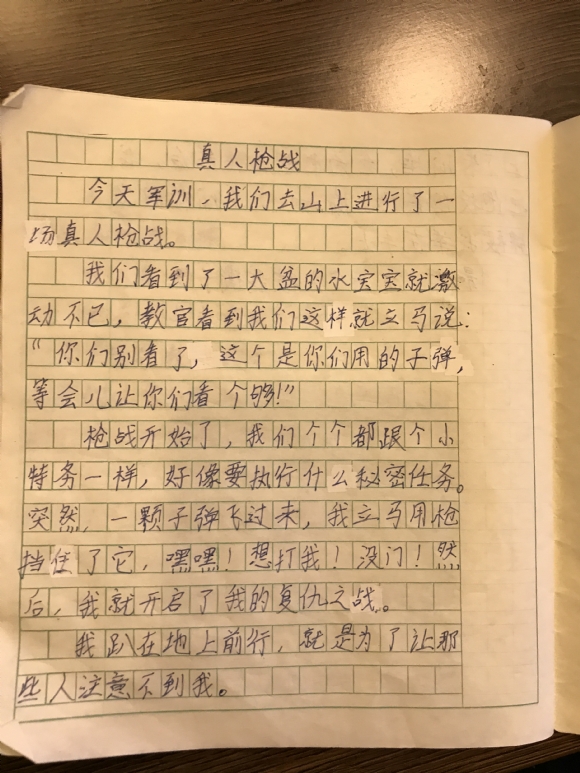 真人枪战
今天军训，我们去山上进行了一
场真人枪战。
我们看到了一大盆的水宝宝就激
动不已，教官看到我们这样就立马说：
“你们别看了，这个是你们用的子弹，
等会儿让你们看个够！”
枪战开始了，我们个个都跟个小
特务一样，好像要执行什么秘密任务。
突然，一颗子弹飞过来，我立马用枪
挡住了它，嘿嘿！想打我！没门！然
后，我就开启了我的复仇之战。
我趴在地上前行，就是为了让那
些人注意不到我。